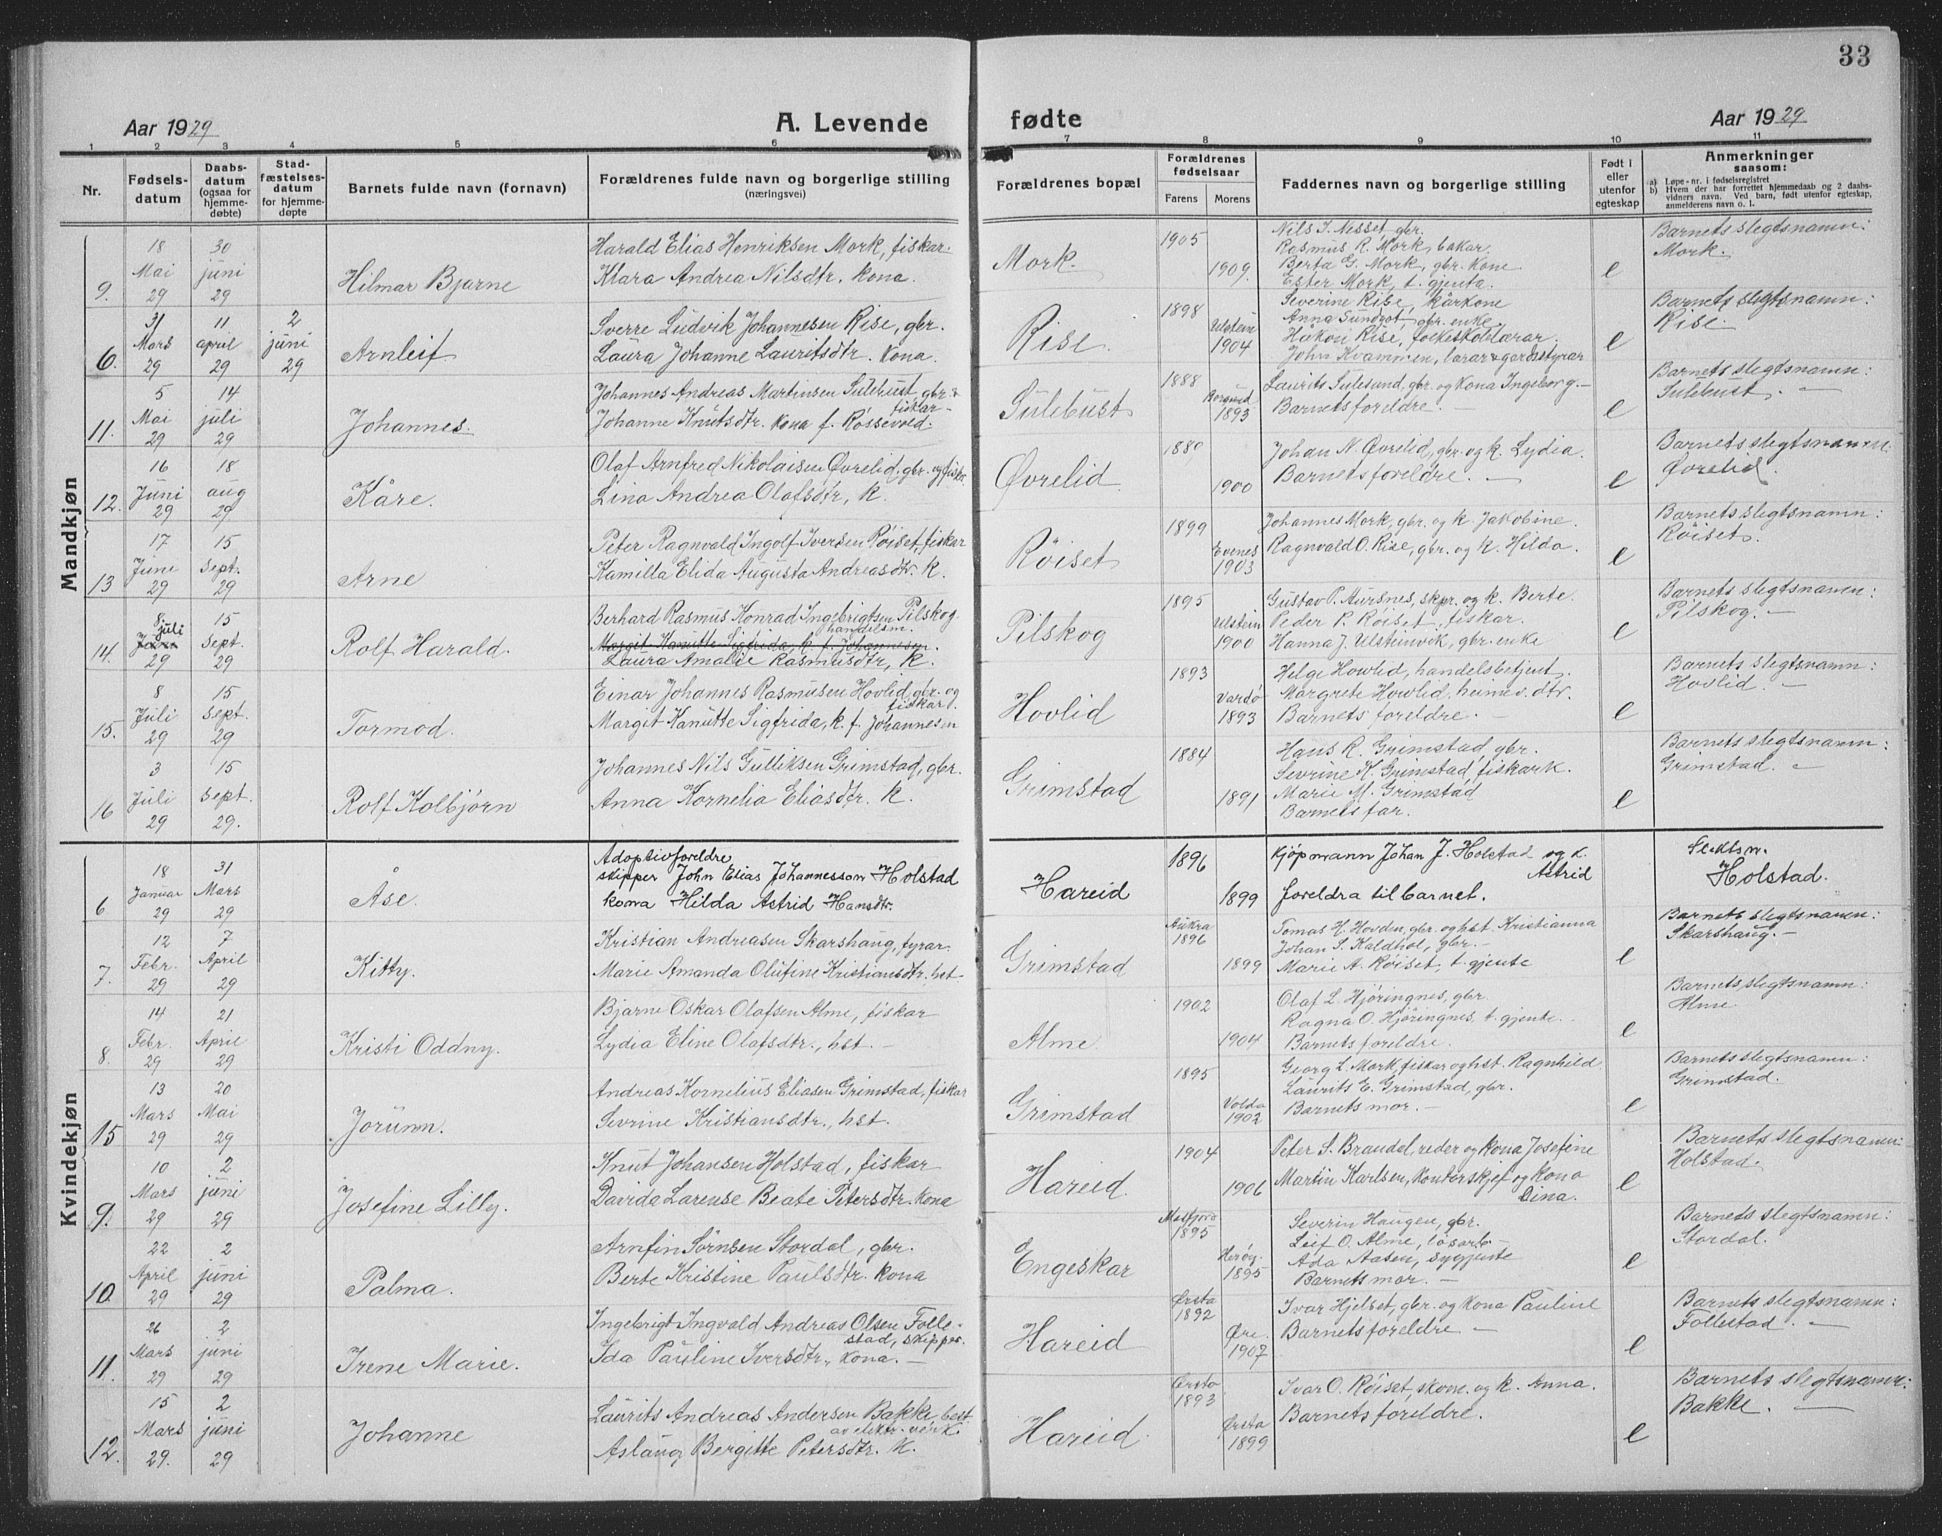 33
Aar 1929 A. Levende fødte Aar 1929
1 2 3 4 5 6 7 8 9 10 11
Nr.
Fødselsdatum
Daabsdatum (ogsaa for hjemmedøbte)
Stadfæstelsesdatum for hjemmedøpte
Barnets fulde navn (fornavn)
Forældrenes fulde navn og borgerlige stilling (næringsvei)
Forældrenes bopæl
Forældrenes fødselsaar
Farens Morens
Faddernes navn og borgerlige stilling
Født i eller utenfor egteskap
Anmerkninger saasom:
a) Løpe-nr. i fødselsregistret
b) Hvem der har forrettet hjemmedaab og 2 daabsvidners navn. Ved barn, født utenfor egteskap, anmelderens navn o. l.
Mandkjøn
9. 18 Mai 29 30 juni 29 Hilmar Bjarne
Harald Elias Henriksen Mork, fiskar.
Klara Andrea Nilsdtr. kona.
Mork. 1905 1909.
Nils I. Nesset gbr.
Rasmus R. Mork, bakar
Berta G. Mork, gbr. kone
Ester Mork, t. gjenta.
e
Barnets slegtsnamn:
Mork.
6. 31 Mars 29 11 april 29 2 juni 29 Arnleif
Sverre Ludvik Johannesen Rise, gbr.
Laura Johanne Lauritsdtr. kona.
Rise. 1898 Ulstein 1904
Severine Rise, kårkone
Anna Sundgot, gbr. enke
Håkon Rise, folkeskolelærar.
John Kvammen, lærar & gardstyrar
e
Barnets slegtsnamn:
Rise.
11. 5 Mai 29 14 juli 29 Johannes.
Johannes Andreas Martinsen Sulebust, gbr. & fiskar
Johanne Knutsdtr. kona f. Røssevold.
Sulebust 1888 Borgund 1893
Laurits Sulesund, gbr. og kona Ingeborg. —
Barnets foreldre. —
e
Barnets slegtsnamn:
Sulebust. —
12. 16 Juni 29 18 aug 29 Kåre.
Olaf Arnfred Nikolaisen Øvrelid, gbr. og fisker
Lina Andrea Olafsdtr, k.
Øvrelid. 1880 1900
Johan N. Øvrelid, gbr. og k. Lydia.
Barnets foreldre. —
e
Barnets slegtsnamn:
Øvrelid.
13 17 June 29 15 Sept. 29 Arne
Peter Ragnvald Ingolf Iversen Røiset, fiskar
Kamilla Elida Augusta Andreasdtr. k.
Røiset 1899 Evenes 1903
Johannes Mork, gbr. og k. Jakobine.
Ragnvald O. Rise, gbr. og k. Hilda.
e
Barnets slegtsnamn:
Røiset.
14. 8 juli 29 15 Sept. 29 Rolf Harald.
Berhard Rasmus Konrad Ingebrigtsen Pilskog handelsm.
Margit Hanutte Sigfrida, k. f. Johannesen.
Laura Amalie Rasmusdtr, k.
Pilskog 1895 Ulstein 1900
Gustav P. Aursnes, skpr. og k. Berte.
Peder P. Røiset, fiskar.
Hanna J. Ulsteinvik, gbr. enke
e
Barnets slegtsnamn:
Pilskog. —
15. 8 Juli 29 15 Sept. 29 Tormod.
Einar Johannes Rasmusen Hovlid, gbr. og fiskar.
Margit Kanutte Sigfrida, k. f. Johannesen
Hovlid 1893 Vardø 1893
Helge Hovlid, handelsbetjent.
Margrete Hovlid, heimev. dtr.
Barnets foreldre. —
e
Barnets slegtsnamn:
Hovlid. —
16 3 Juli 29 15 Sept. 29. Rolf Kolbjörn
Johannes Nils Gulliksen Grimstad, gbr.
Anna Kornelia Eliasdtr. k.
Grimstad 1884 1891
Hans R. Grimstad, gbr.
Sevrine K. Grimstad, fiskark.
Marie M. Grimstad
Barnets far.
e
Barnets slegtsnamn:
Grimstad. —
Kvindekjøn
6. 18 Januar 29 31 Mars 29 Åse.
Adoptivforeldre
skipper John Elias Johannesson Holstad
kona Hilda Astrid Hansdtr.
Hareid 1896 1899
Kjøpmann Johan J. Holstad og k. Astrid
foreldra til barnet.
Slektsn.
Holstad.
7. 12 Febr. 29 7 April 29 Kitty.
Kristian Andreasen Skarshaug, fyrar.
Marie Amanda Olufine Kristiansdtr. hst.
Grimstad Aukra 1896 1899
Tomas H. Hovden, gbr. og hst. Kristianna
Johan S. Kaldhol, gbr. —
Marie A. Røiset, t. gjente
e
Barnets slegtsnamn:
Skarshaug. —
8. 14 Febr. 29 21 April 29 Kristi Oddny.
Bjarne Oskar Olafsen Alme, fiskar
Lydia Eline Olafsdtr., hst. —
Alme 1902 1904
Olaf L. Hjøringnes, gbr.
Ragna O. Hjøringnes, t. gjente.
Barnets foreldre.
e
Barnets slegtsnamn:
Alme.
15 13 Mars 29 20 Mai 29 Jorunn.
Andreas Kornelius Eliasen Grimstad, fiskar
Sevrine Kristiansdtr., hst.
Grimstad 1895 Volda 1902
Georg L. Mork, fiskar og hst. Ragnhild
Laurits E. Grimstad, gbr.
Barnets mor. —
e
Barnets slegtsnamn:
Grimstad.
9. 10 Mars 29 2 juni 29 Josefine Lilly.
Knut Johansen Holstad, fiskar
Davida Larense Beate Petersdtr. kona
Hareid. 1904 1906
Peter S. Brandal, reder og kona Josefine
Martin Karlsen, kontorskjef og kona Dina.
e
Barnets slegtsnamn:
Holstad.
10. 22 April 29 2 juni 29 Palma.
Arnfin Sørnsen Stordal, gbr.
Berte Kristine Paulsdtr. kona
Engeskar 1895 Herøy 1895
Severin Haugen, gbr.
Leif O. Alme, løsarb —
Ada Aasen, sygjente
Barnets mor. —
e
Barnets slegtsnamn:
Stordal.
11. 26 Mars 29 2 juni 29 Irene Marie.
Ingebrigt Ingvald Andreas Olsen Follestad, skipper.
Ida Pauline Iversdtr., kona. —
Hareid Ørsta 1892 Øre 1907
Ivar Hjelset, gbr. og kona Pauline
Barnets foreldre —
e
Barnets slegtsnamn:
Follestad. —
12. 15 Mars 29. 2 juni 29 Johanne
Laurits Andreas Andersen Bakke, best. av elektr. verk.
Aslaug Bergitte Petersdtr. k.
Hareid. Ørsta 1893 Ørsta 1899
Ivar O. Røiset, skom. og k. Anna.
Barnets foreldre.
e
Barnets slegtsnamn:
Bakke. —